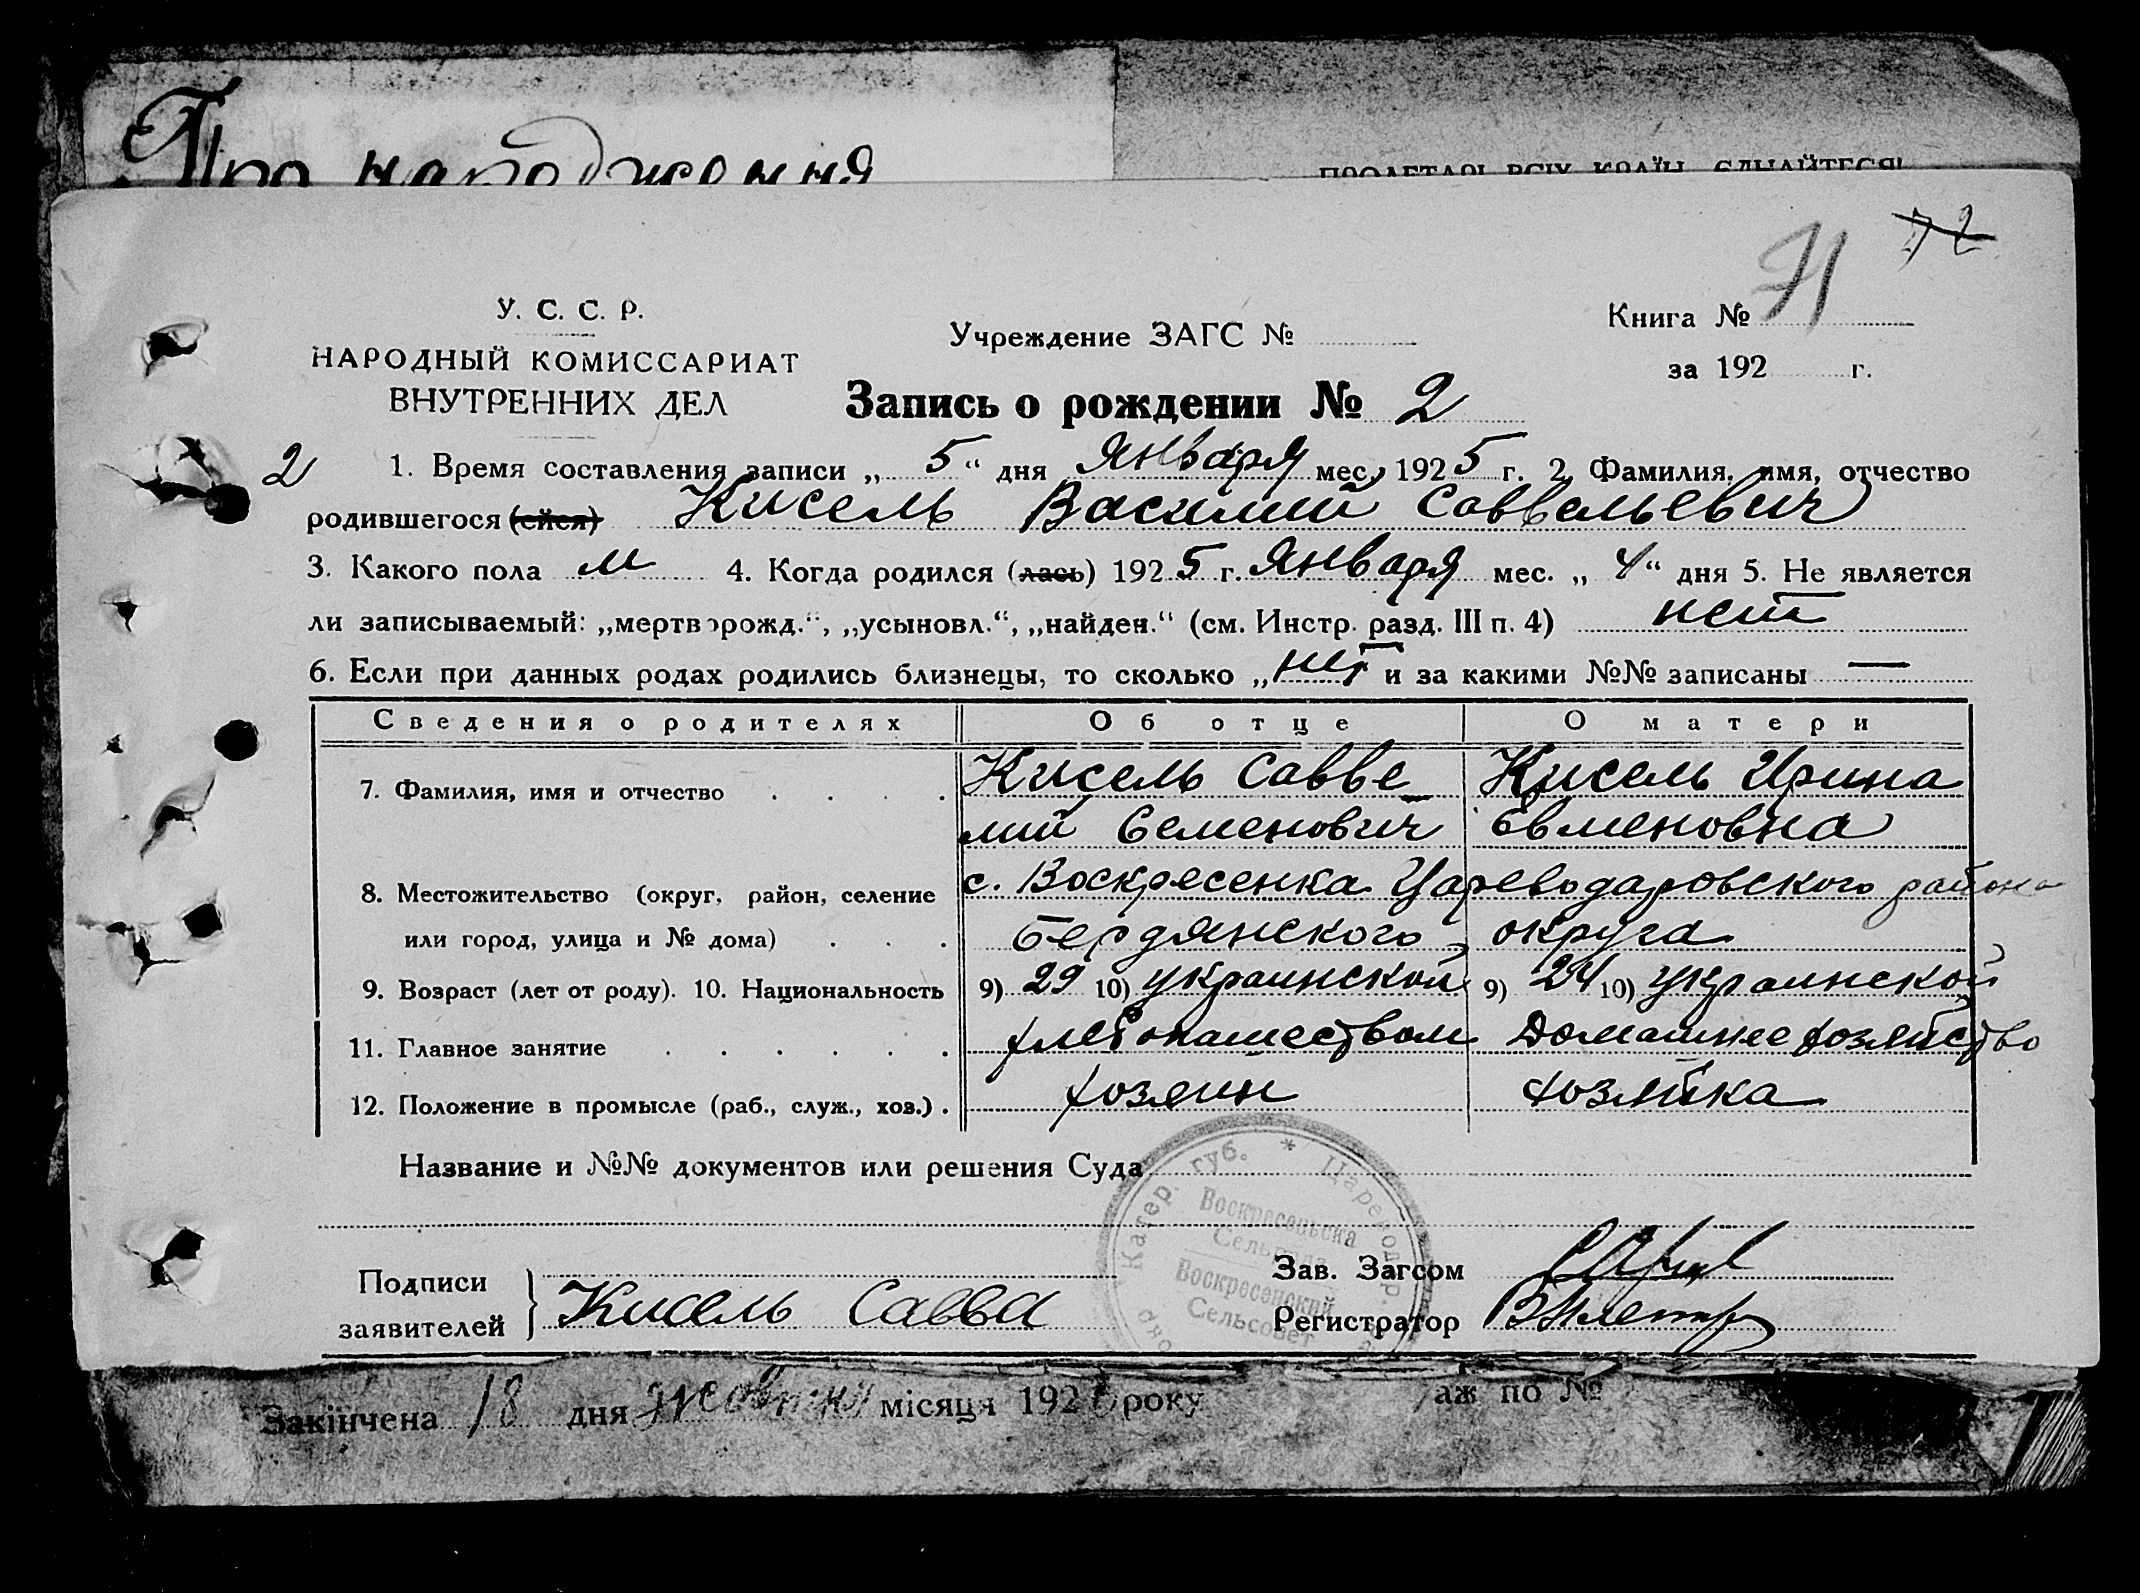 Про народження
ПРОЛЕТАРІ ВСІХ КРАЇН, ЄДНАЙТЕСЯ!
72
71
У. С. С. Р.
НАРОДНЫЙ КОМИССАРИАТ
ВНУТРЕННИХ ДЕЛ
Учреждение ЗАГС №
Книга №
за 192 г.
Запись о рождении № 2
2 1. Время составления записи „ 5 “ дня Января мес. 1925 г. 2. Фамилия, имя, отчество
родившегося (ейся) Кисель Василий Саввельевич
3. Какого пола м 4. Когда родился (лась) 1925 г. Января мес. „ 4 “ дня 5. Не является
ли записываемый: „мертворожд.“, „усыновл.“, „найден.“ (см. Инстр. разд. III п. 4) нет
6. Если при данных родах родились близнецы, то сколько „ нет и за какими №№ записаны —
Сведения о родителях Об отце О матери
7. Фамилия, имя и отчество . . . . Кисель Савве Кисель Ирина
лий Семенович Евменовна
8. Местожительство (округ, район, селение с. Воскресенка Цареводаровского района
или город, улица и № дома) . . . Бердянского округа
9. Возраст (лет от роду). 10. Национальность 9) 29 10) украинской 9) 24 10) украинской
11. Главное занятие . . . . . . хлебопашеством Домашнее хозяйство
12. Положение в промысле (раб., служ., хоз.) . хозяин хозяйка
Название и №№ документов или решения Суда
Катер. губ. * Цареводар.
Воскресеньска
Сельрада
Воскресенский
Сельсовет
Подписи
заявителей } Кисель Савва
Зав. Загсом
Регистратор
Закінчена 18 дня жовтня місяця 192 року аж по №